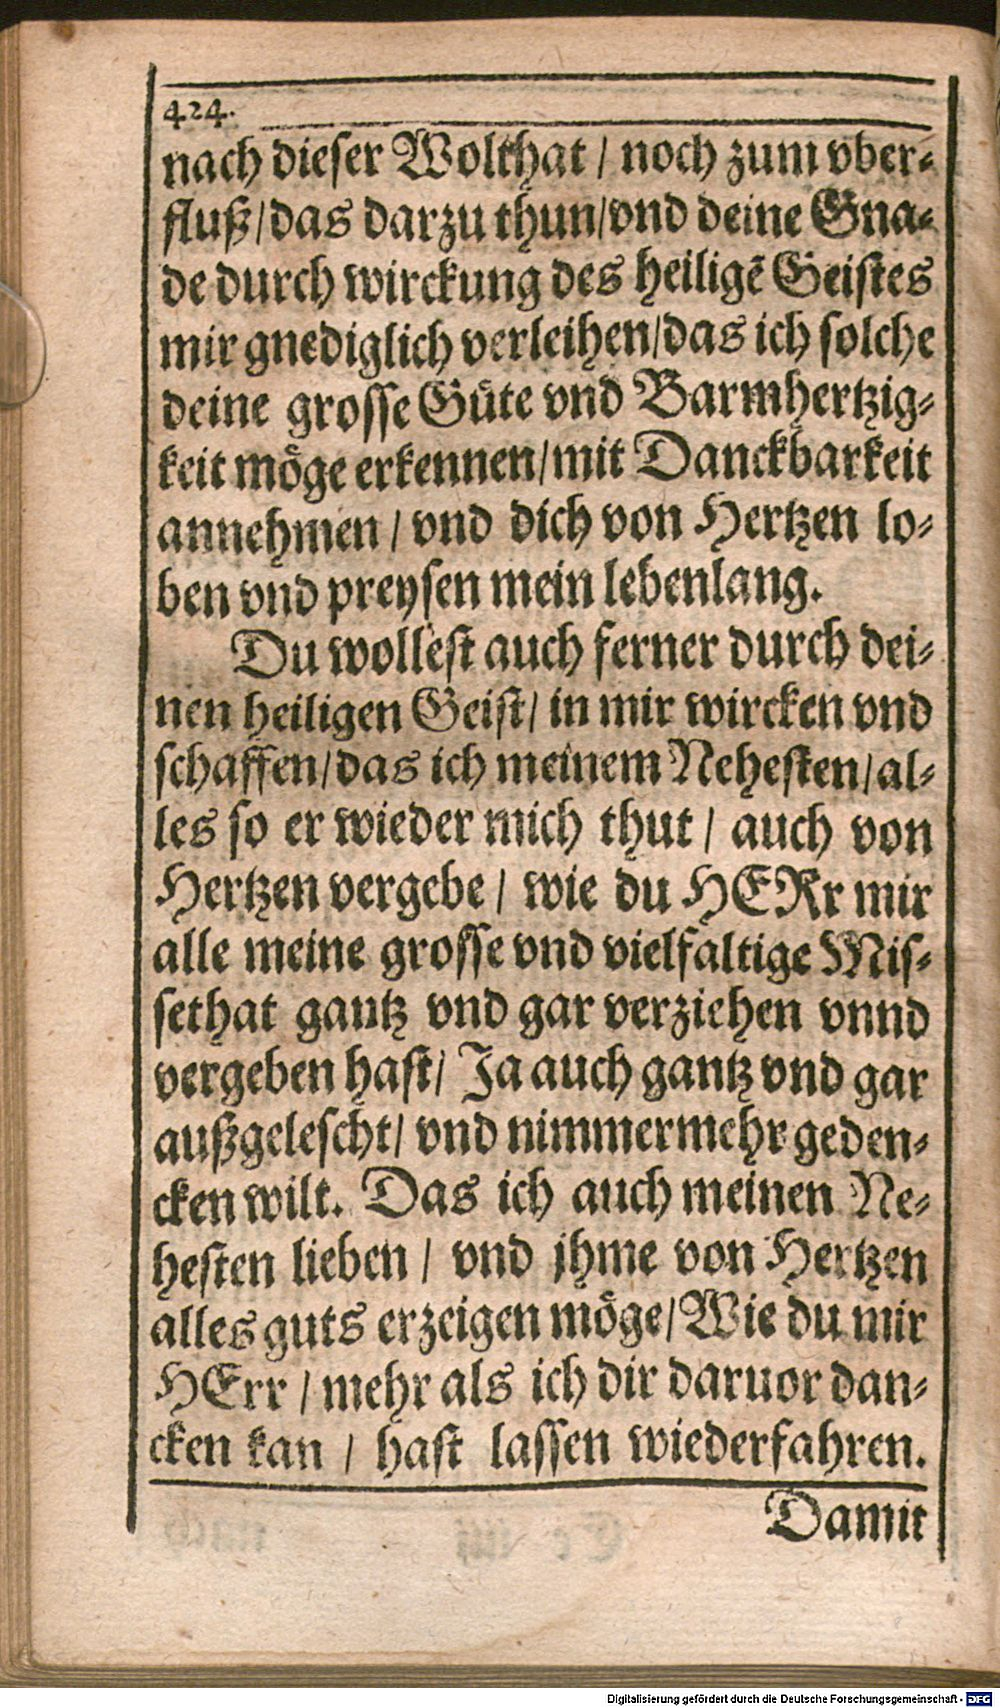 424.
nach dieser Wolthat / noch zum vber-
fluß/das darzu thun/vnd deine Gna-
de durch wirckung des heiligē Geistes
mir gnediglich verleihen/das ich solche
deine grosse Güte vnd Barmhertzig-
keit möge erkennen/mit Danckbarkeit
annehmen / vnd dich von Hertzen lo-
ben vnd preysen mein lebenlang.
Du wollest auch ferner durch dei-
nen heiligen Geist/ in mir wircken vnd
schaffen/das ich meinem Nehesten/al-
les so er wieder mich thut / auch von
Hertzen vergebe / wie du HERr mir
alle meine grosse vnd vielfaltige Mis-
sethat gantz vnd gar verziehen vnnd
vergeben hast/ Ja auch gantz vnd gar
außgelescht/ vnd nimmermehr geden-
cken wilt. Das ich auch meinen Ne-
hesten lieben / vnd jhme von Hertzen
alles guts erzeigen möge/Wie du mir
HErr / mehr als ich dir daruor dan-
cken kan / hast lassen wiederfahren.
Damit
Digitalisierung gefördert durch die Deutsche Forschungsgemeinschaft - DFG